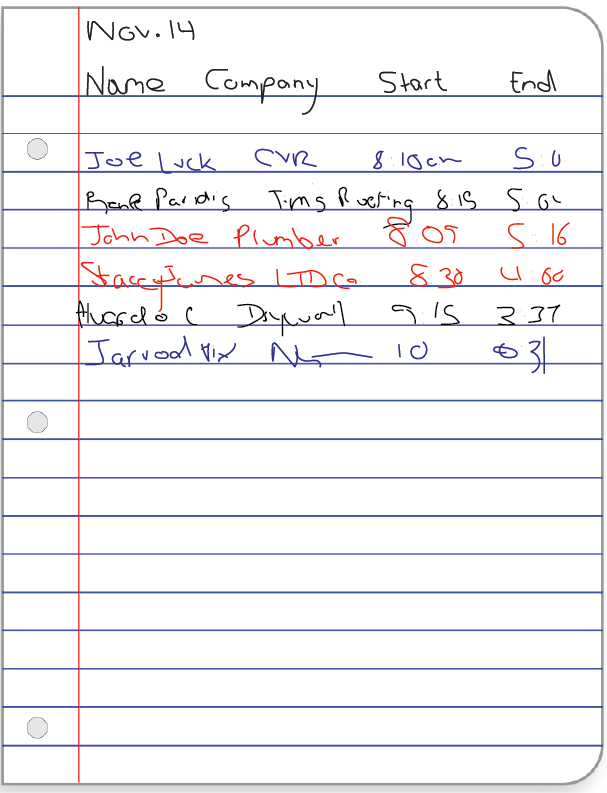 Nov. 14
Name Company Start End
Joe Luck CVR 8:10am 5:0
Paridis Tims 8:15 5:0
John Doe Plumber 8 05 5 16
Stacey James LTD Co. 8 30 4 00
C Drywall 9:15 3:37
Jarvod 10 31